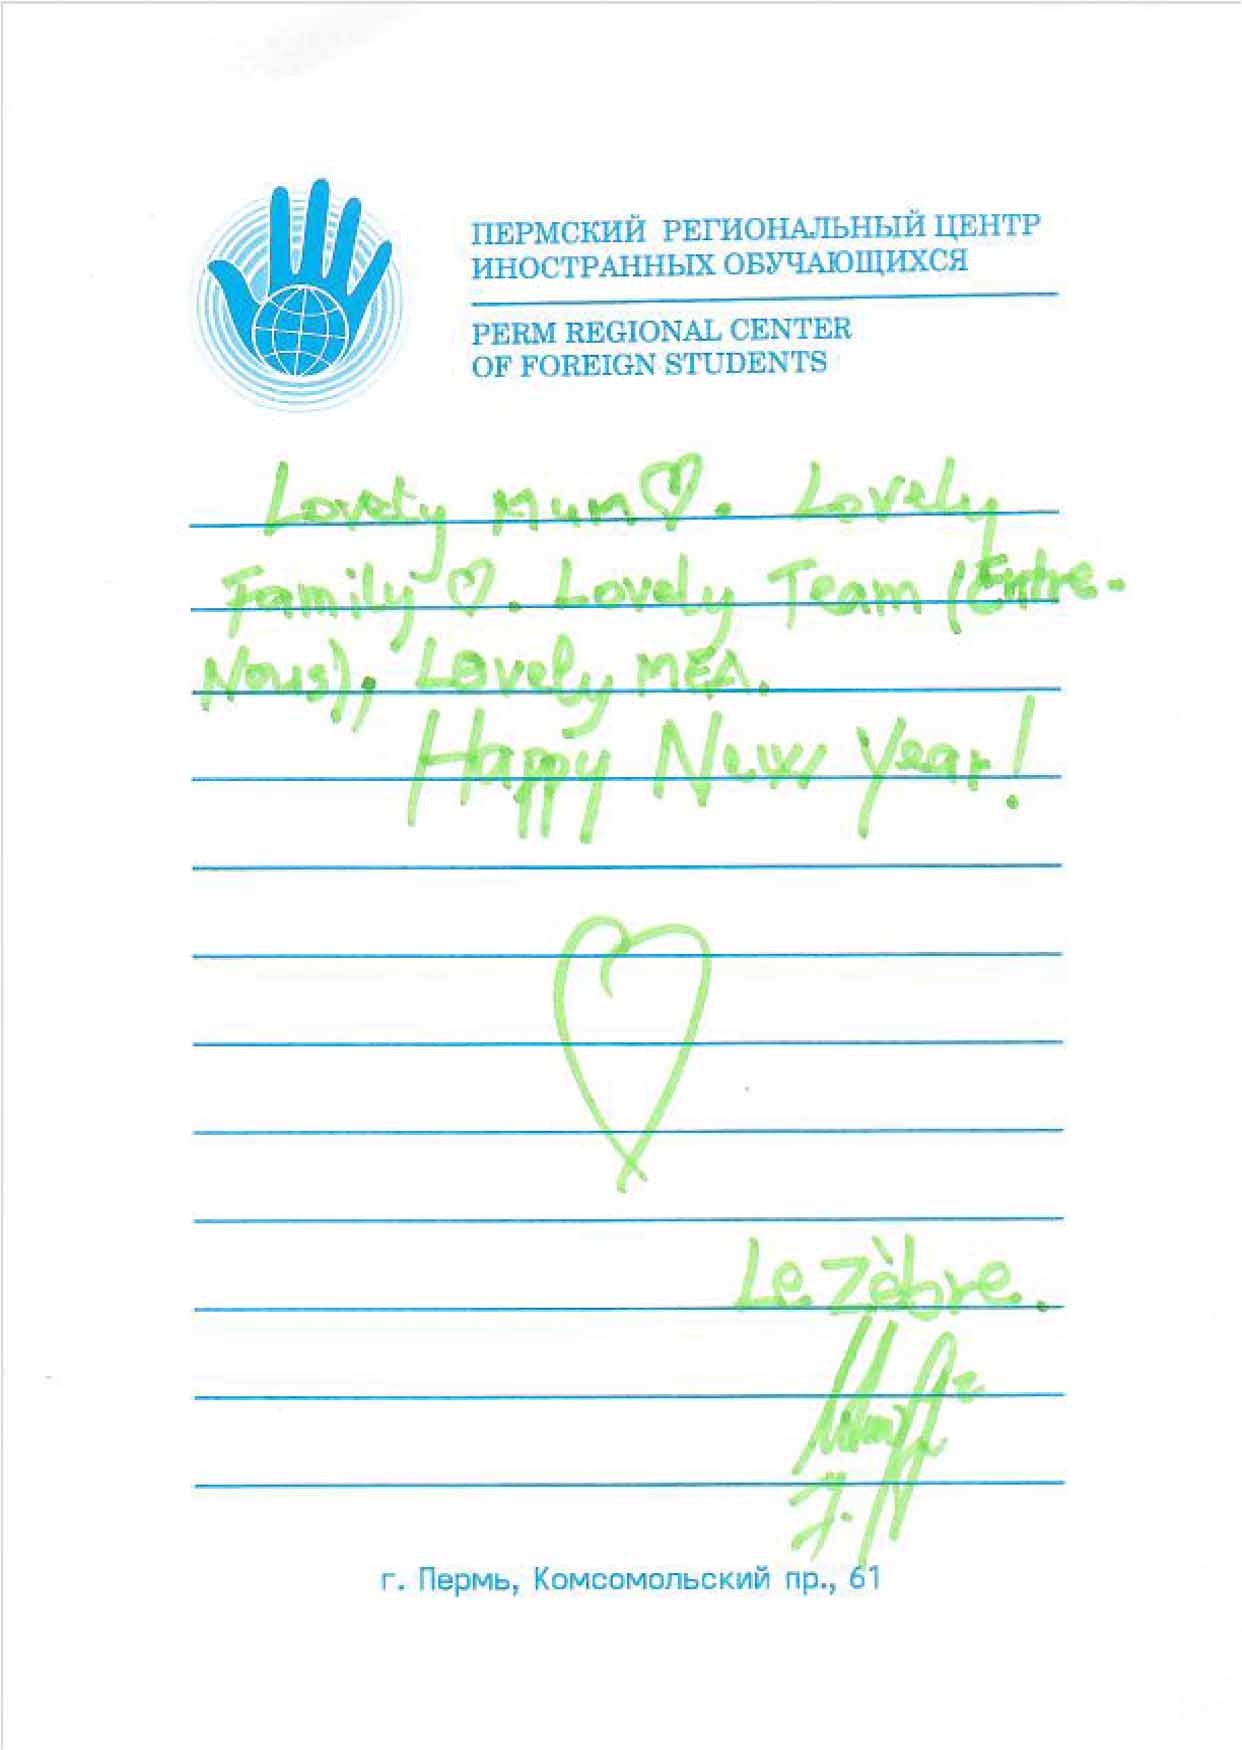 ПЕРМСКИЙ РЕГИОНАЛЬНЫЙ ЦЕНТР
ИНОСТРАННЫХ ОБУЧАЮЩИХСЯ
PERM REGIONAL CENTER
OF FOREIGN STUDENTS
Lovely Mum♡. Lovely
Family ♡. Lovely Team (Entre-
Nous), Lovely MEA.
Happy New Year!
Le Zèbre.
J.
г. Пермь, Комсомольский пр., 61